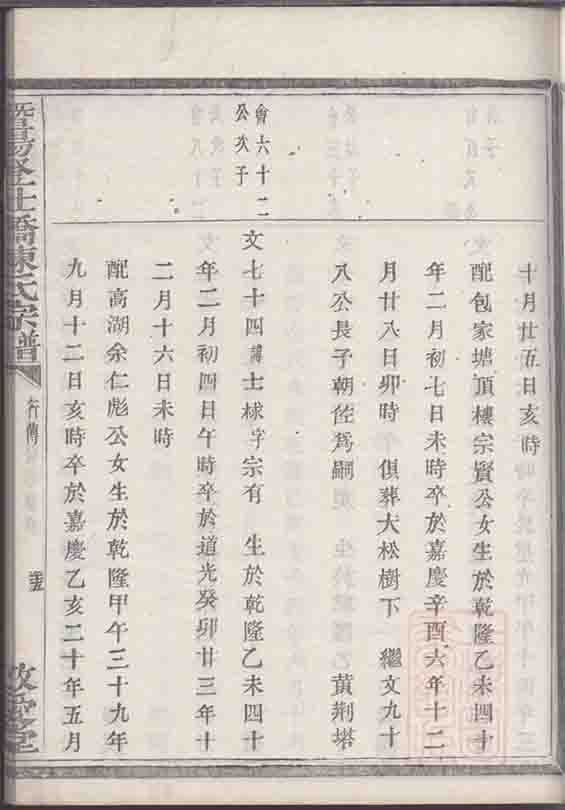 十月廿五日亥時
配包家塘頂樓宗賢公女生於乾隆乙未四十
年二月初七日未時卒於嘉慶辛酉六年十二
月廿八日卯時 俱葬大松樹下 繼文九十
八公長子朝佐爲嗣 黃荆塔
會六十二
公次子
文七十四諱士棣字宗有 生於乾隆乙未四十
年二月初四日午時卒於道光癸卯廿三年十
二月十六日未時
配高湖余仁彪公女生於乾隆甲午三十九年
九月十二日亥時卒於嘉慶乙亥二十年五月
暨陽登仕橋陳氏宗譜
行傳